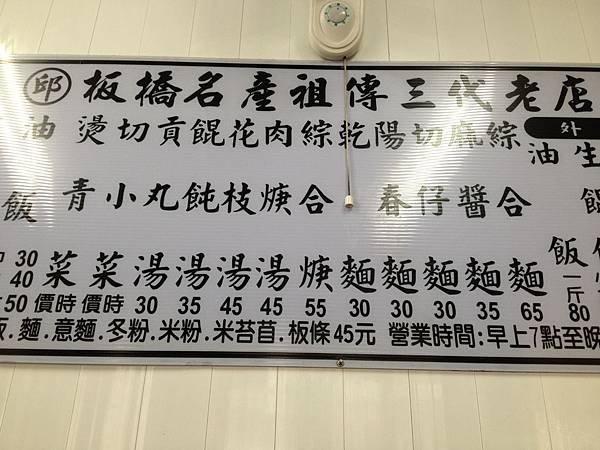 邱 板橋名產祖傳三代老店
油飯 30 40 50
燙青菜 時價
切小菜 時價
貢丸湯 30
餛飩湯 35
花枝湯 45
肉焿湯 45
綜合焿 55
乾麵 30
陽春麵 30
切仔麵 30
麻醬麵 35
綜合麵 65
外
油飯 一斤 80
生餛
飯.麵.意麵.冬粉.米粉.米苔苜.板條45元 營業時間:早上7點至晚